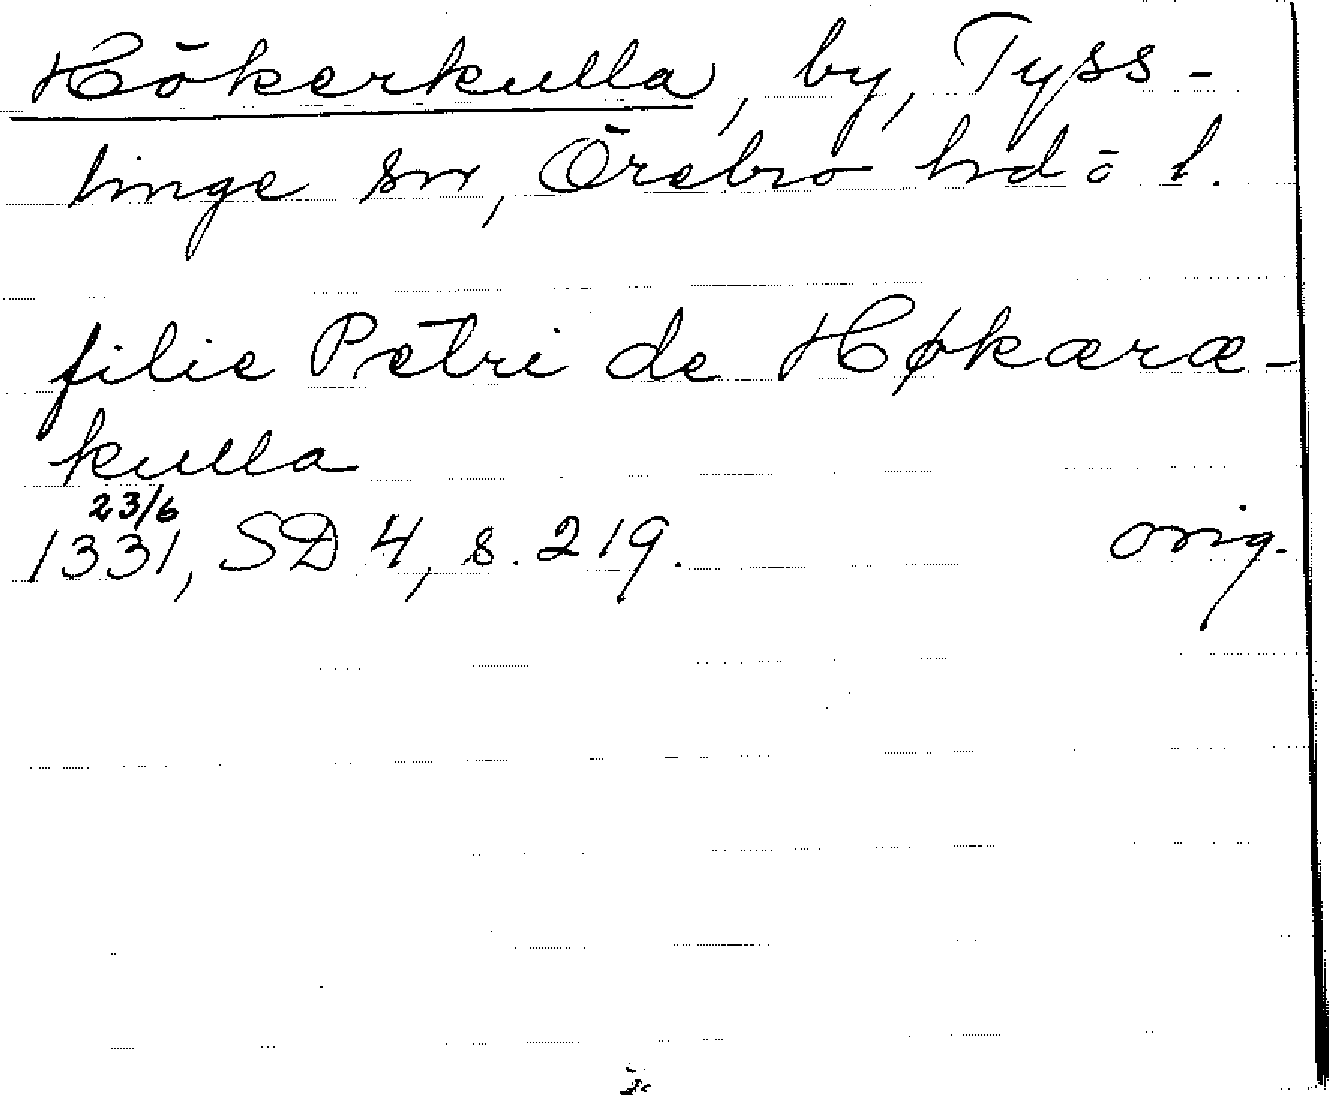 Hökerkulla, by, Tyss-
linge sn, Örebro hd o l.
filie Petri de Høkæræ-
kulla
23/6
1331, SD 4, s. 219. orig.